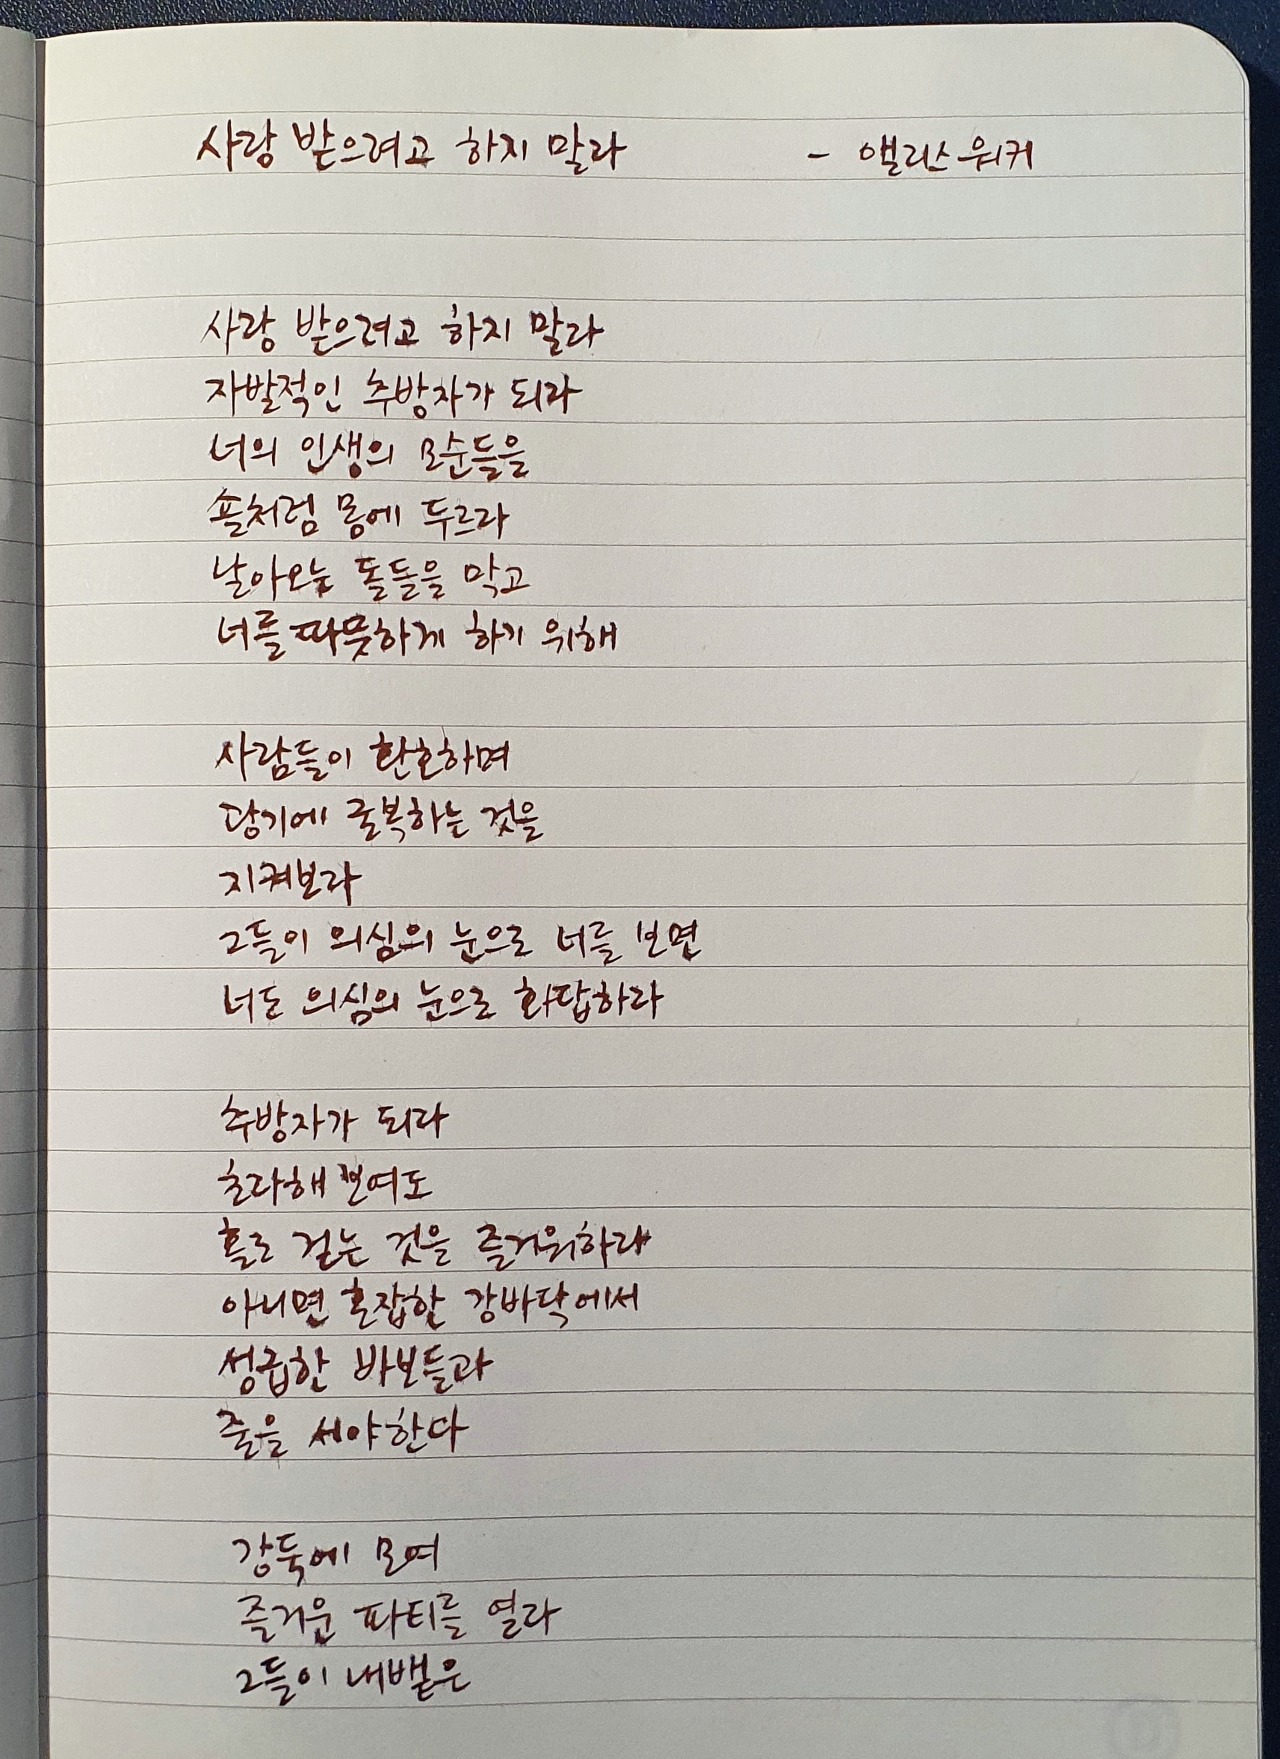 사랑 받으려고 하지 말라 - 앨리스 워커
사랑 받으려고 하지 말라
자발적인 추방자가 되라
너의 인생의 모순들을
숄처럼 몸에 두르라
날아오는 돌들을 막고
너를 따뜻하게 하기 위해
사람들이 환호하며
광기에 굴복하는 것을
지켜보라
그들이 의심의 눈으로 너를 보면
너도 의심의 눈으로 화답하라
추방자가 되라
초라해 보여도
홀로 걷는 것을 즐거워하라
아니면 혼잡한 강바닥에서
성급한 바보들과
줄을 서야한다
강둑에 모여
즐거운 파티를 열라
그들이 내뱉은